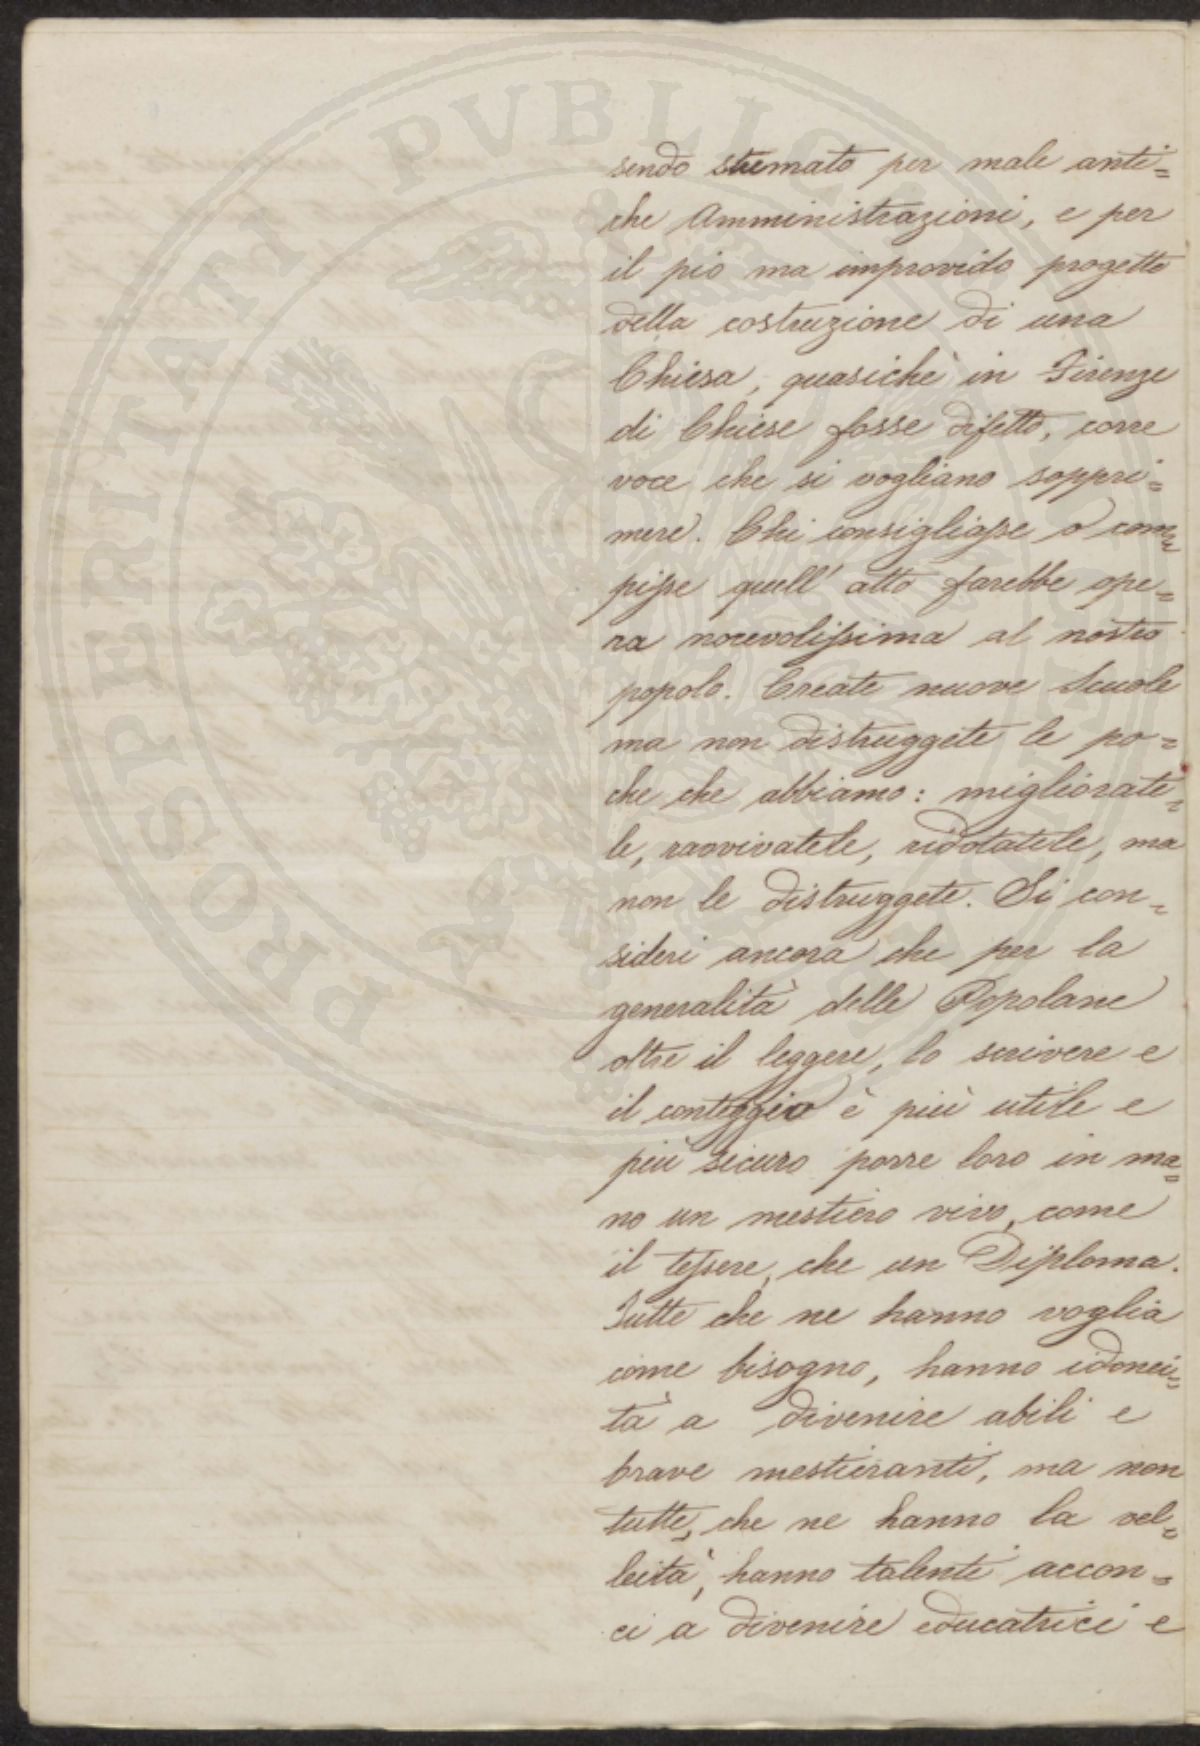 sendo stremato per male anti=
che Amministrazioni, e per
il pio ma improvido progetto
della costruzione di una
Chiesa, quasichè in Firenze
di Chiese fosse difetto, corre
voce che si vogliano soppri=
mere. Chi consigliasse o com=
pisse quell' atto farebbe ope=
ra nocevolissima al nostro
popolo. Create nuove Scuole
ma non distruggete le po=
che che abbiamo: migliorate=
le, ravvivatele, ridotatele, ma
non le distruggete. Si con=
sideri ancora che per la
generalità delle Popolane
oltre il leggere, lo scrivere e
il conteggio è più utile e
più sicuro porre loro in ma=
no un mestiero vivo, come
il tessere, che un Diploma.
Tutte che ne hanno voglia
come bisogno, hanno idonei=
tà a divenire abili e
brave mestieranti, ma non
tutte, che ne hanno la vel=
leità, hanno talenti accon=
ci a divenire educatrici e
PROSPERITATI PVBLICAE